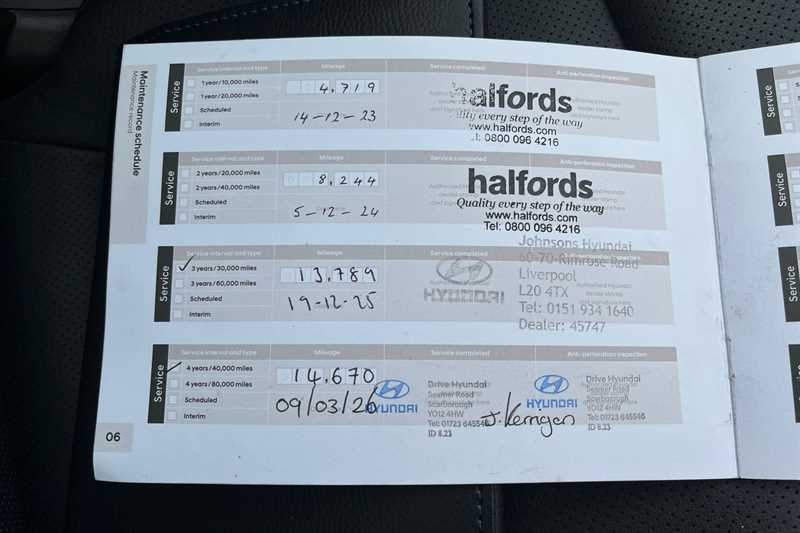 Maintenance schedule
Maintenance record
Service
Service interval and type Mileage Service completed Anti-perforation inspection
1 year/10,000 miles
1 year/20,000 miles
Scheduled
Interim
4,719
14-12-23
halfords
Quality every step of the way
www.halfords.com
Tel: 0800 096 4216
Service
Service interval and type Mileage Service completed Anti-perforation inspection
2 years/20,000 miles
2 years/40,000 miles
Scheduled
Interim
8,244
5-12-24
halfords
Quality every step of the way
www.halfords.com
Tel: 0800 096 4216
Service
Service interval and type Mileage Service completed
3 years/30,000 miles
3 years/60,000 miles
Scheduled
Interim
13,789
19-12-25
HYUNDAI
Johnsons Hyundai
60-70 Rimrose Road
Liverpool
L20 4TX
Tel: 0151 934 1640
Dealer: 45747
Service
Service interval and type Mileage Service completed Anti-perforation inspection
4 years/40,000 miles
4 years/80,000 miles
Scheduled
Interim
14,670
09/03/26
HYUNDAI
Drive Hyundai
Seamer Road
Scarborough
YO12 4HW
Tel: 01723 645546
ID 8.23
J.Kerrigan
HYUNDAI
Drive Hyundai
Seamer Road
Scarborough
YO12 4HW
Tel: 01723 645546
ID 8.23
06